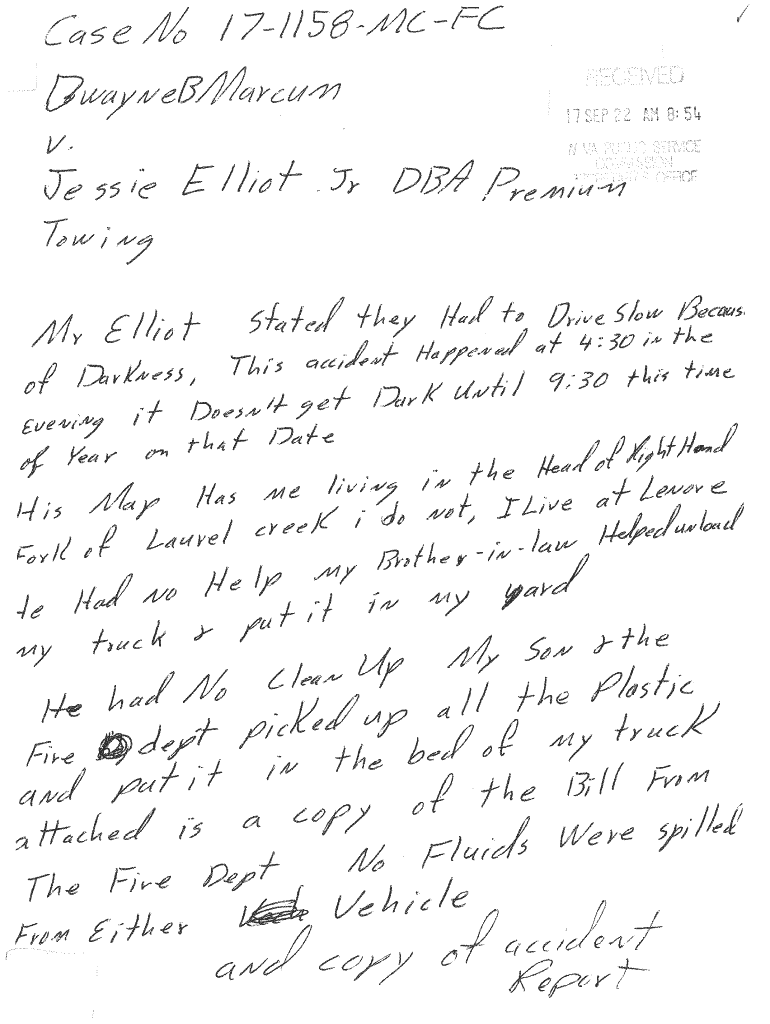 Case No 17-1158-MC-FC
RECEIVED
17 SEP 22 AM 8:54
W VA PUBLIC SERVICE
COMMISSION
OFFICE
DwayneBMarcum
v.
Jessie Elliot Jr DBA Premium
Towing
Mr Elliot stated they Had to Drive Slow Becaus
of Darkness, This accident Happened at 4:30 in the
Evening it Doesn't get Dark Until 9:30 this time
of Year on that Date
His Map Has me living in the Head of Right Hand
Fork of Laurel creek i do not, I Live at Lenore
He Had no Help my Brother-in-law Helped unload
my truck & put it in my yard
He had No Clean Up My Son & the
Fire dept picked up all the Plastic
and put it in the bed of my truck
attached is a copy of the Bill From
The Fire Dept No Fluids Were spilled
From Either Vehicle
and copy of accident
Report